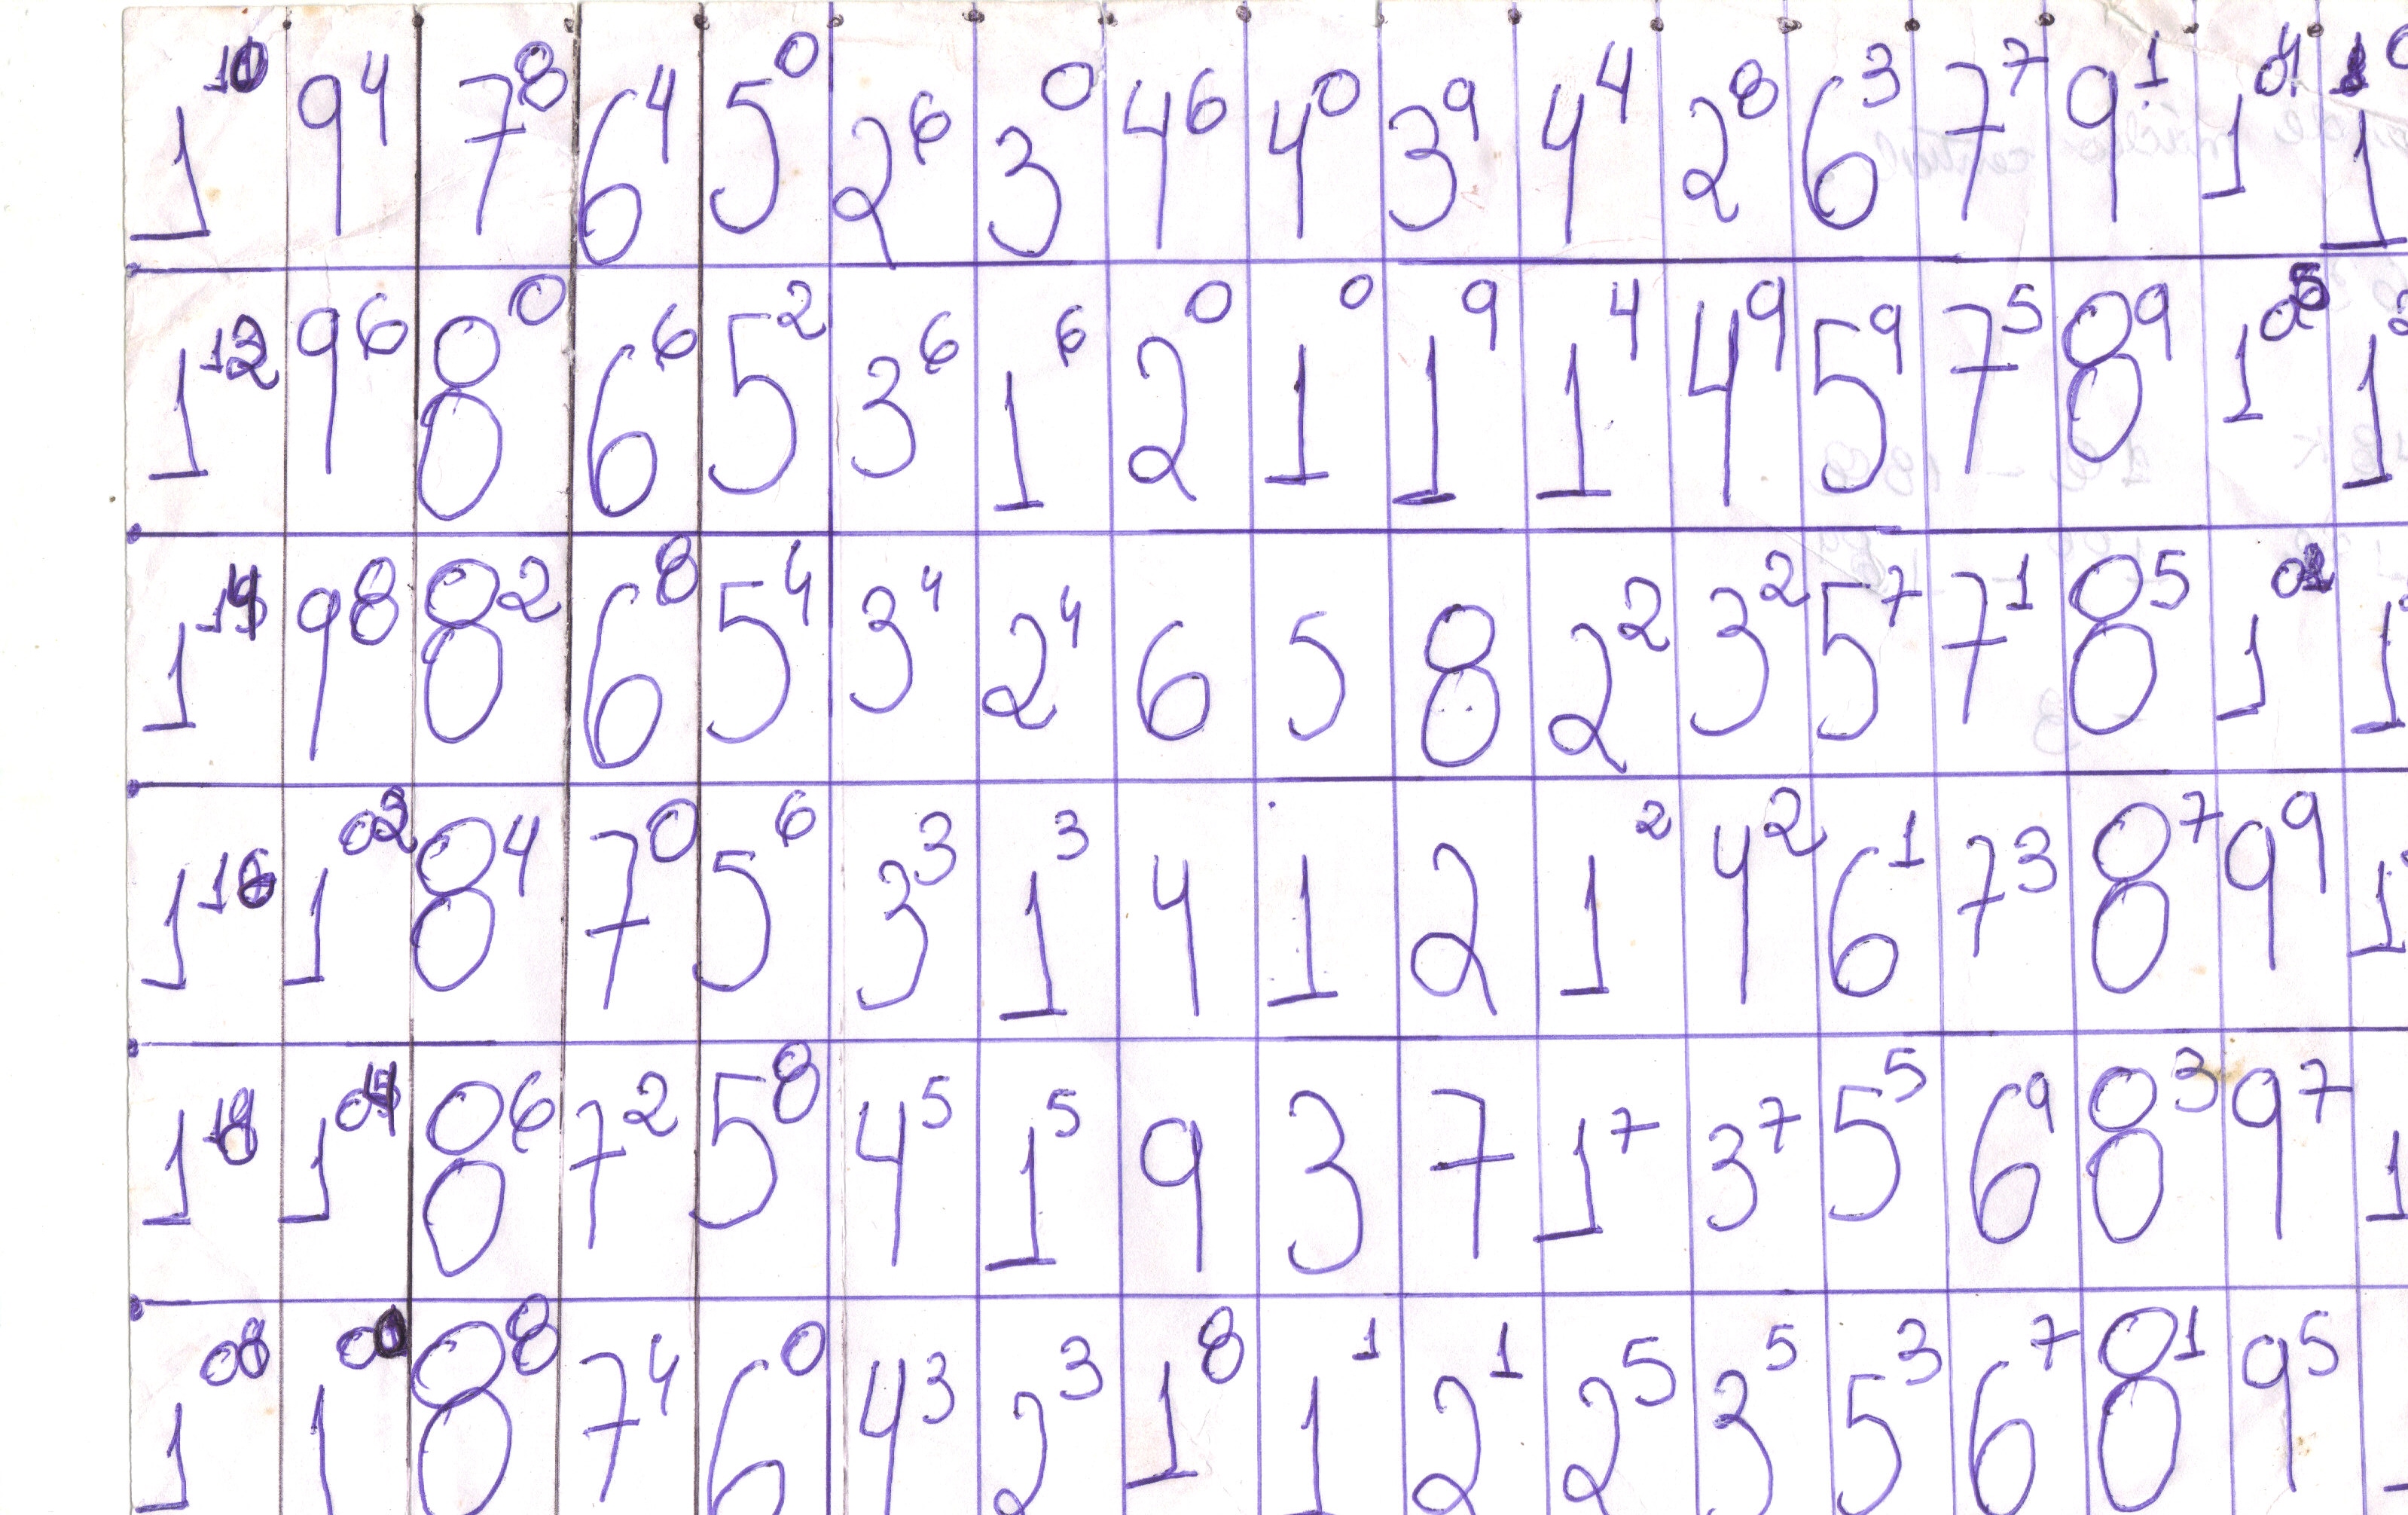 110 94 78 64 50 26 30 46 40 39 44 28 63 77 91
112 96 80 66 52 36 16 20 10 19 14 49 59 75 89
114 98 82 68 54 34 24 6 5 8 22 32 57 71 85
116 102 84 70 56 33 13 4 1 2 12 42 61 73 87 99
118 104 86 72 58 45 15 9 3 7 17 37 55 69 83 97
108 100 88 74 60 43 23 18 11 21 25 35 53 67 81 95